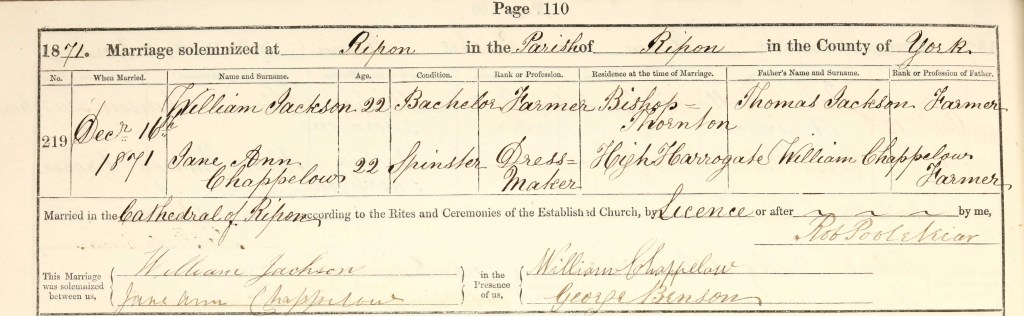 Page 110
1871. Marriage solemnized at Ripon in the Parish of Ripon in the County of York
No. When Married. Name and Surname. Age. Condition. Rank or Profession. Residence at the time of Marriage. Father's Name and Surname. Rank or Profession of Father.
William Jackson 22 Bachelor Farmer Bishop= Thomas Jackson Farmer
219 Decr 16th Thornton
1871 Jane Ann 22 Spinster Dress= High Harrogate William Chappelow
Chappelow Maker Farmer
Married in the Cathedral of Ripon according to the Rites and Ceremonies of the Established Church, by Licence or after by me,
Rob Poole Vicar
This Marriage was solemnized between us,
William Jackson
Jane Ann Chappelow
in the Presence of us,
William Chappelow
George Benson